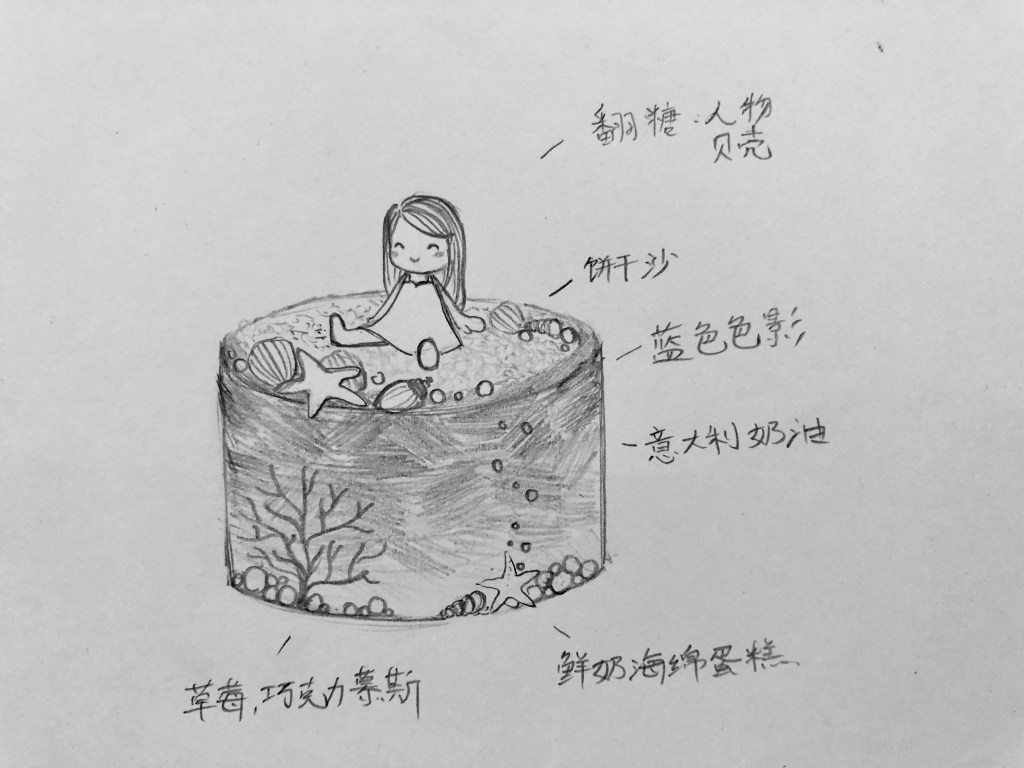 翻糖:人物
贝壳
饼干沙
蓝色色影
意大利奶油
鲜奶海绵蛋糕
草莓,巧克力慕斯